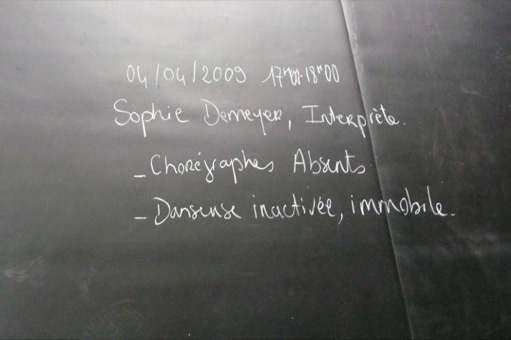 04/04/2009 17H00-18H00
Sophie Demeyer, Interprète.
- Chorégraphes Absents
- Danseuse inactivée, immobile.